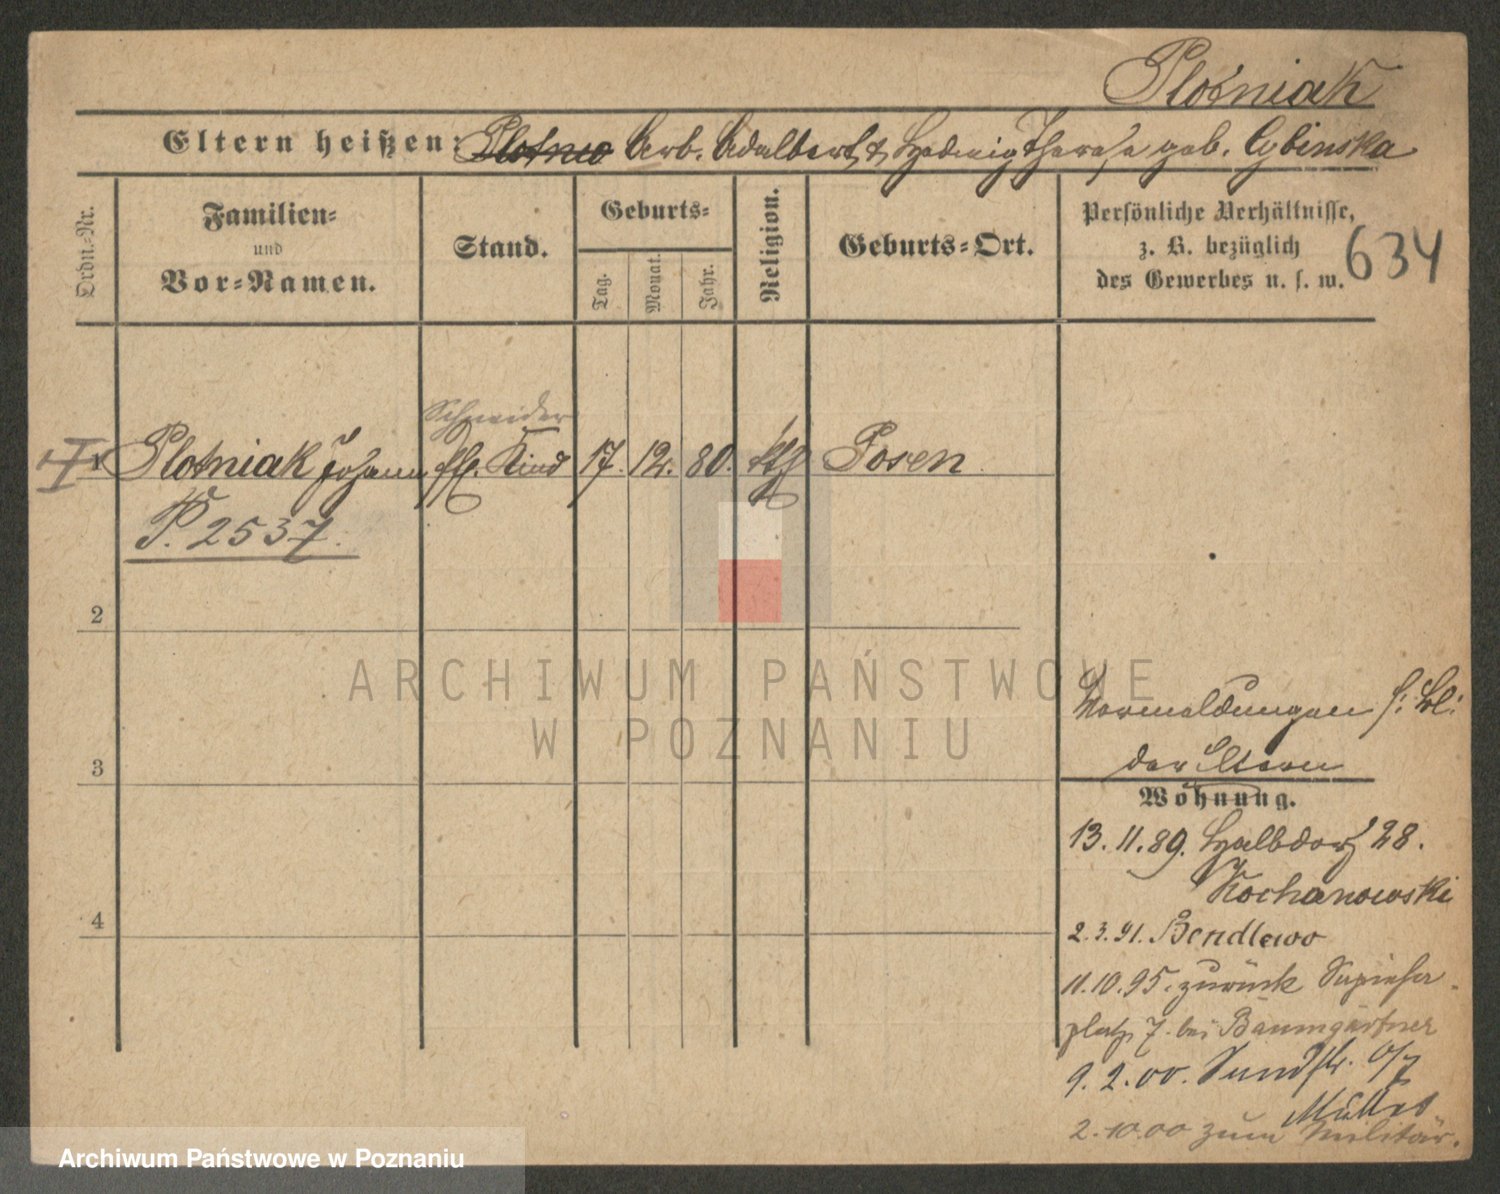 Plotniak
Eltern heißen: Plotnio Arb. Adalbert & Hedwig Therese geb. Cybinska
Ordn.-Nr.
Familien-
und
Vor-Namen.
Stand.
Geburts-
Tag.
Monat.
Jahr.
Religion.
Geburts-Ort.
Persönliche Verhältnisse,
z. B. bezüglich
des Gewerbes u. s. w.
634
Schneider
1 Plotniak Johann Kind 17. 12. 80. kth Posen
P. 2537.
2
ARCHIWUM PAŃSTWOWE
W POZNANIU
Vormeldungen s. Bl.
der Eltern
3
Wohnung.
13. 11. 89. Halbdorf 28.
Kochanowski
4
2. 3. 91. Bendlewo
11. 10. 95. zurück Sapieha-
platz 7. bei Baumgärtner
9. 2. 00. 
Müller
2. 10. 00 zum Militär.
Archiwum Państwowe w Poznaniu